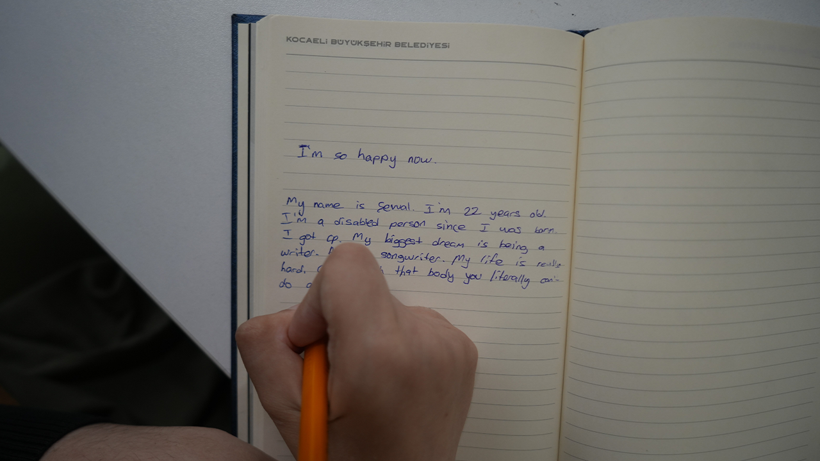 KOCAELİ BÜYÜKŞEHİR BELEDİYESİ
I'm so happy now.
My name is Şewal. I'm 22 years old.
I'm a disabled person since I was born.
I got cp. My biggest dream is being a
writer. songwriter. My life is really
hard. that body you literally
do